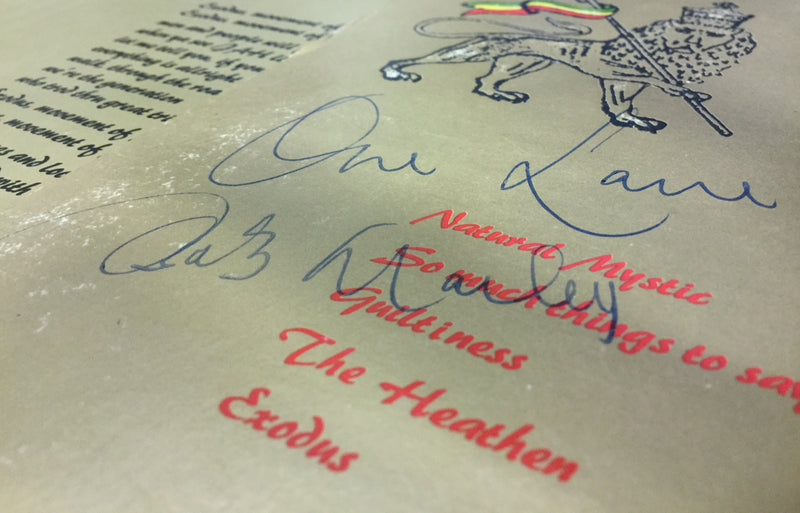 Exodus, movement of
Exodus, movement of
men and people will
tell you, if you
everything is all right
walk, through the roa
we're the generation
who trod thru great tri
Exodus, movement of
movement of
One Love
Bob Marley
Natural Mystic
So much things to say
Guiltiness
The Heathen
Exodus